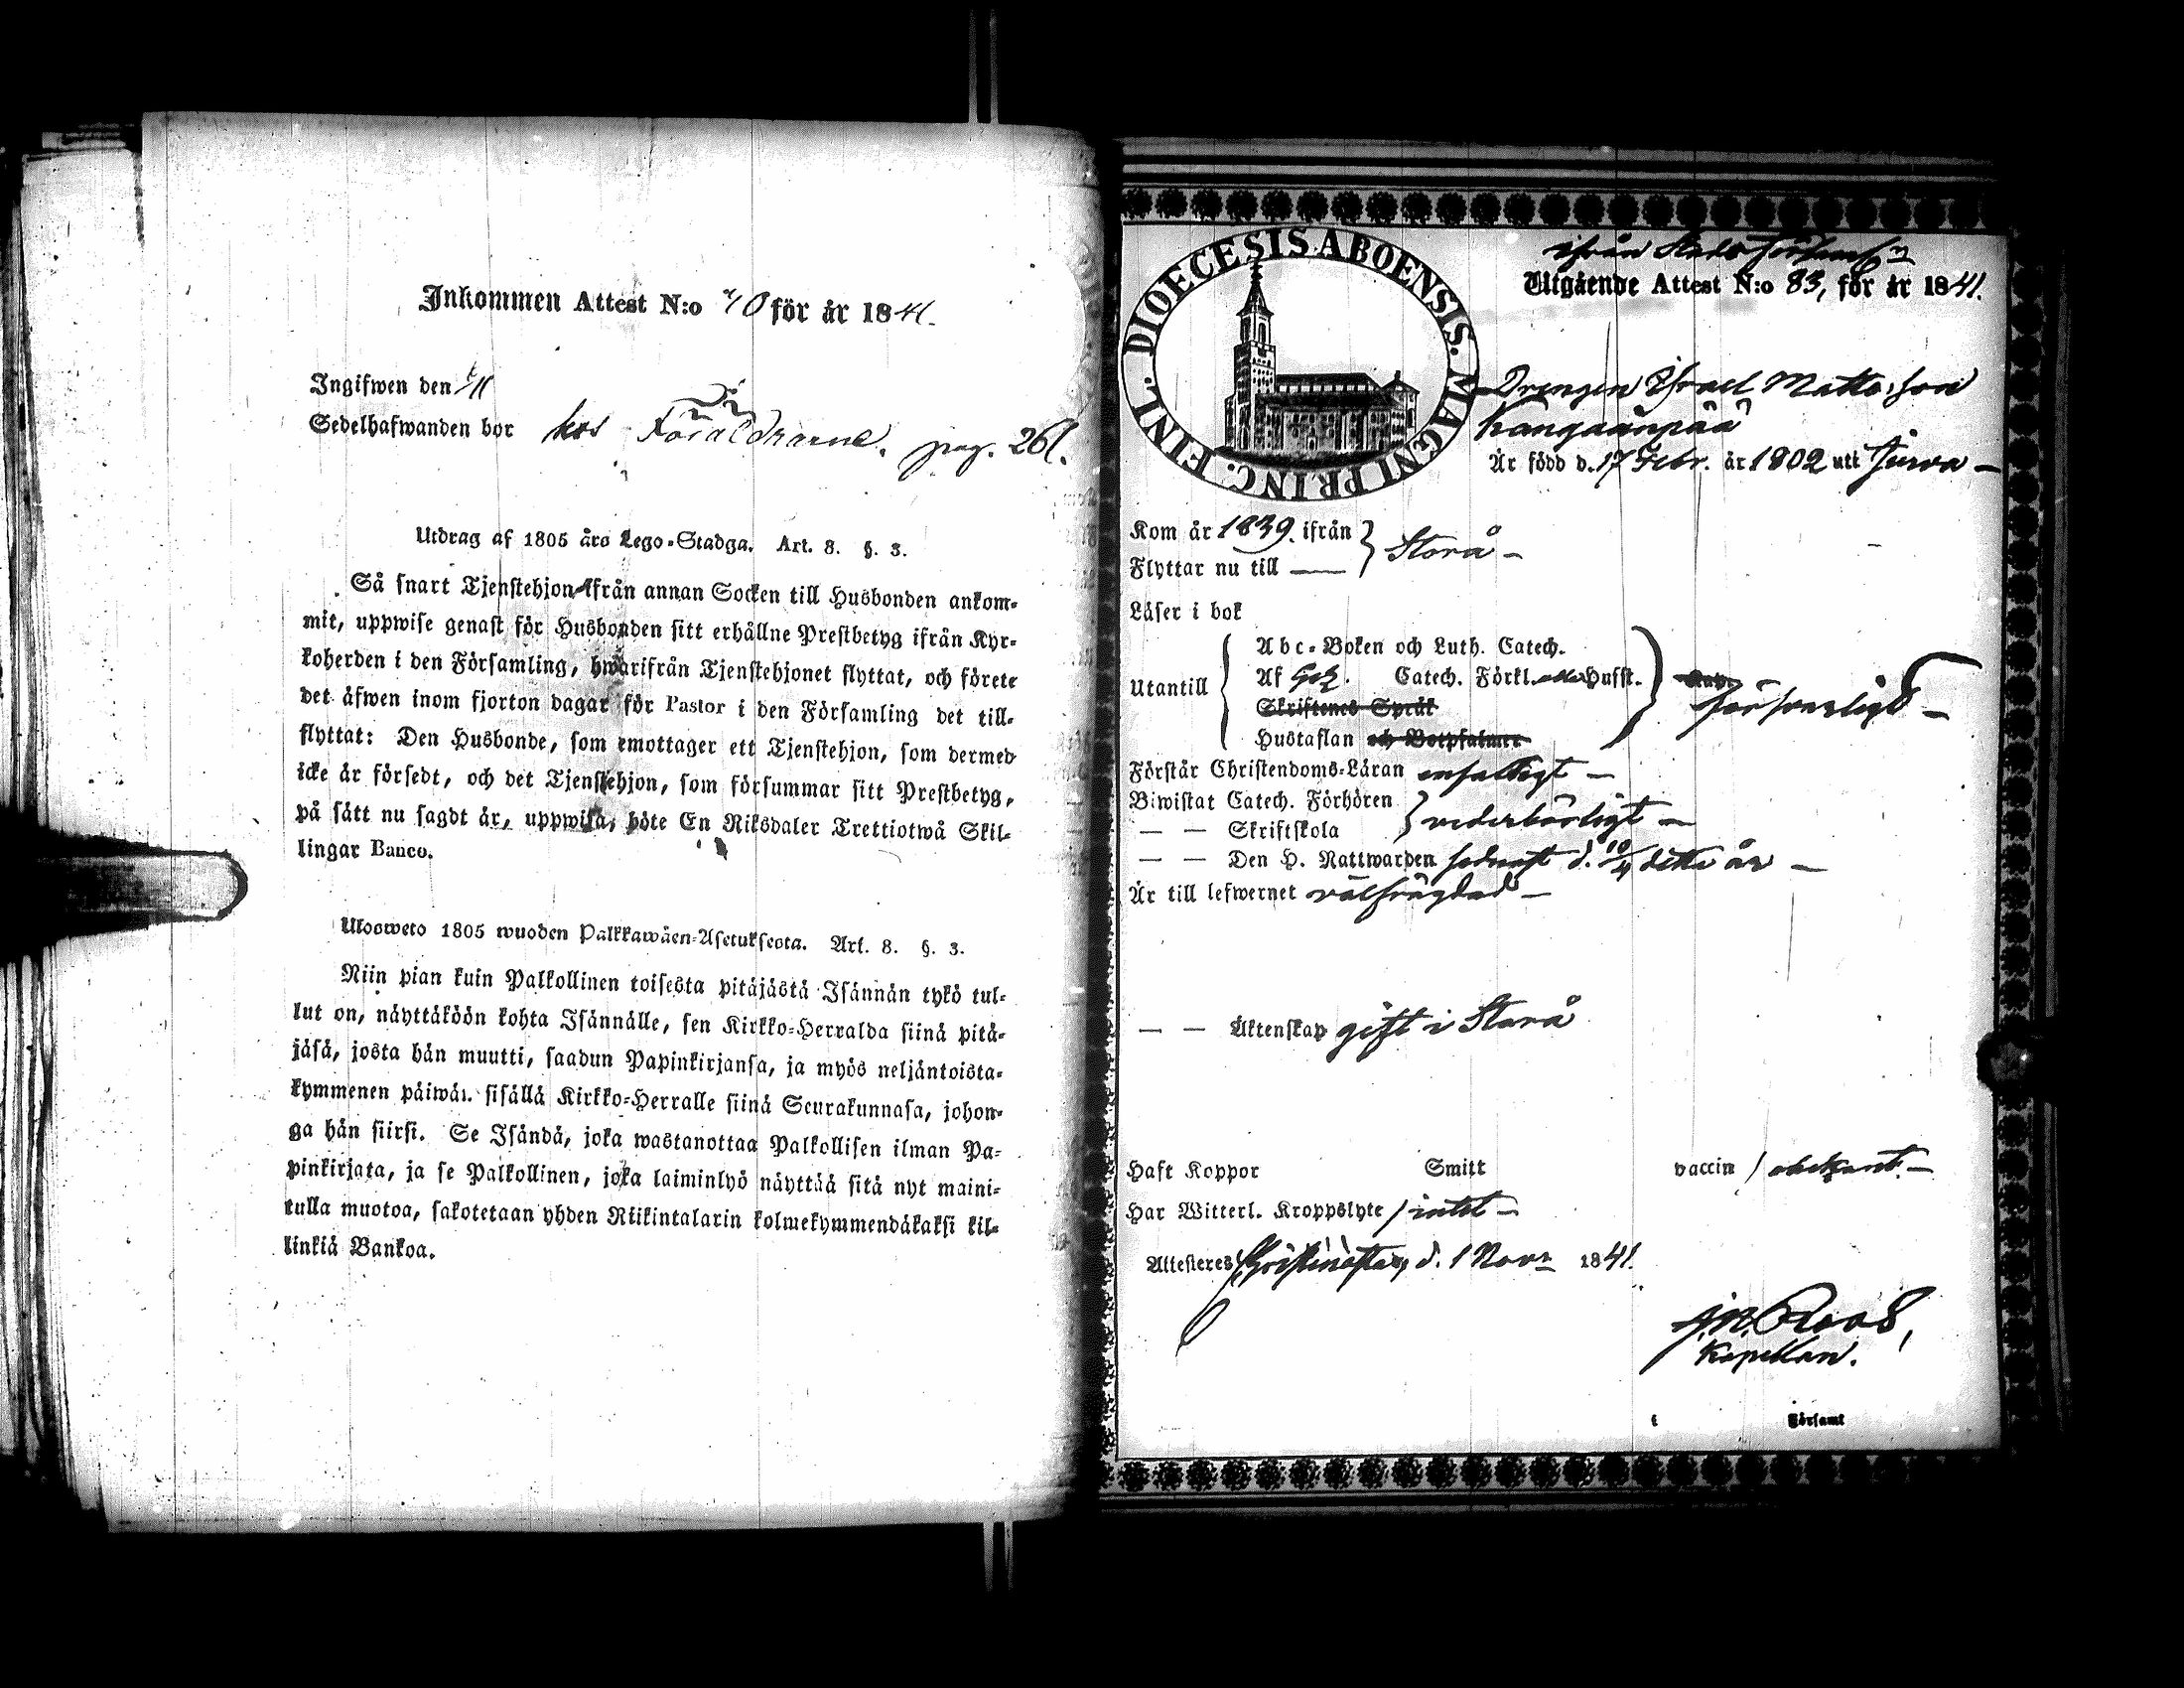 Inkommen Attest N:o 40 för år 1841.
Ingifwen den
Sedelhafwanden bor hos Föräldrarne. pag. 261.
Utdrag af 1805 års Lego-Stadga. Art. 8. §. 3.
Så snart Tjenstehjon ifrån annan Socken till Husbonden ankom-
mit, uppwise genast för Husbonden sitt erhållne Prestbetyg ifrån Kyr-
koherden i den Församling, hwarifrån Tjenstehjonet flyttat, och förete
det äfwen inom fjorton dagar för Pastor i den Församling det till-
flyttat: Den Husbonde, som emottager ett Tjenstehjon, som dermed
icke är försedt, och det Tjenstehjon, som försummar sitt Prestbetyg,
på sätt nu sagdt är, uppwisa, böte En Riksdaler Trettiotwå Skil-
lingar Banco.
Ulosweto 1805 wuoden Palkkawäen-Asetuksesta. Art. 8. §. 3.
Niin pian kuin Palkollinen toisesta pitäjästä Isännän tykö tul-
lut on, näyttäköön kohta Isännälle, sen Kirkko-Herralda siinä pitä-
jäsä, josta hän muutti, saadun Papinkirjansa, ja myös neljäntoista-
kymmenen päiwän sisällä Kirkko-Herralle siinä Seurakunnasa, johon-
ga hän siirsi. Se Isändä, joka wastanottaa Palkollisen ilman Pa-
pinkirjata, ja se Palkollinen, joka laiminlyö näyttää sitä nyt maini-
tulla muotoa, sakotetaan yhden Riikintalarin kolmekymmendäkaksi kil-
linkiä Bankoa.
DIOECESIS ABOENSIS. MAGNI PRINC. FINL.
ifrån Stads församl
Utgående Attest N:o 83, för år 1841.
Drengen Israel Matts son
Kangaanpää
Är född d. 17 Febr. år 1802 uti Jurva —
Kom år 1839. ifrån } Storå —
Flyttar nu till —
Läser i bok
Utantill
Abc-Boken och Luth. Catech.
Af Catech. Förkl. Husst.
Skriftenes Språk
Hustaflan och Botpsalmer
försvarligt —
Förstår Christendoms-Läran enfaldigt —
Biwistat Catech. Förhören
— — Skriftskola } vederbörligt —
— — Den H. Nattwarden sednast d. 10/4 detta år —
Är till lefwernet välfrägdad —
— — Äktenskap gift i Storå
Haft Koppor Smitt vaccin / obekant —
Har Witterl. Kroppslyte / intet —
Attesteres Christinestad, d. 1 Novr 1841.
J.N. Roos,
Kapellan.
i Församl